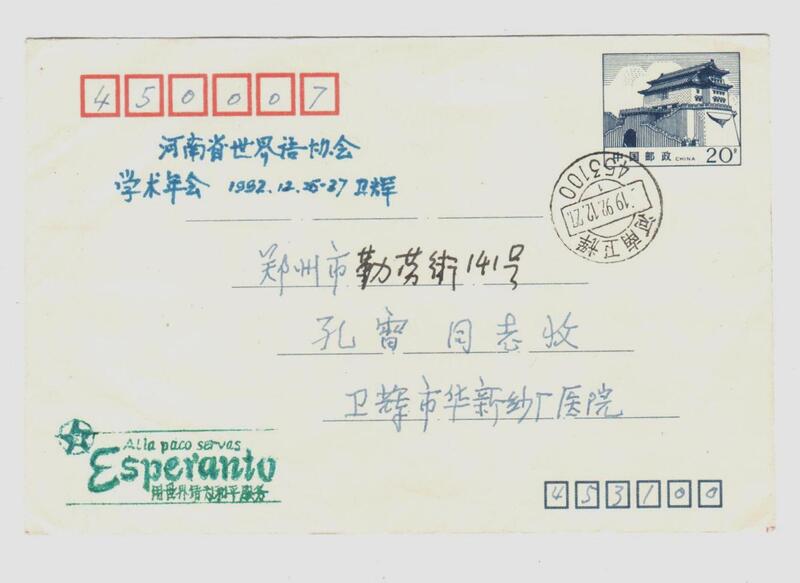 450007
河南省世界语协会
学术年会 1992.12.25-27 卫辉
中国邮政 CHINA 20分
453100
1
1992.12.27.
河南卫辉
郑州市勤劳街141号
孔雷同志收
卫辉市华新纱厂医院
Al la paco servas
Esperanto
用世界语为和平服务
453100